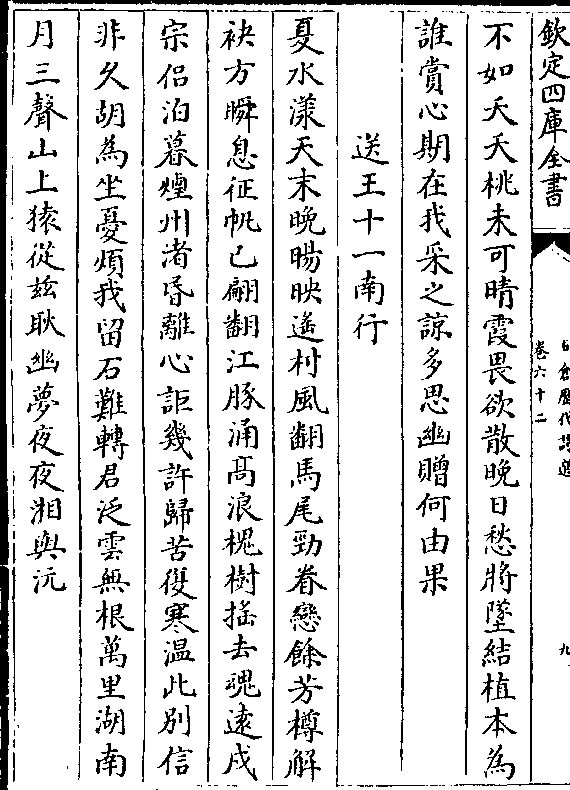 欽定四庫全書
卷六十二
九
不如夭夭桃未可晴霞畏欲散晚日愁將墜結植本為
誰賞心期在我采之諒多思幽贈何由果
送王十一南行
夏水漾天末晚暘映遥村風翻馬尾勁眷戀餘芳樽解
袂方瞬息征帆已翩翻江豚涌高浪楓樹揺去魂遠戍
宗侣泊暮煙州渚昏離心詎幾許歸苦復寒温此别信
非久胡為坐憂煩我留石難轉君泛雲無根萬里湖南
月三聲山上猿從兹耿幽夢夜夜湘與沅